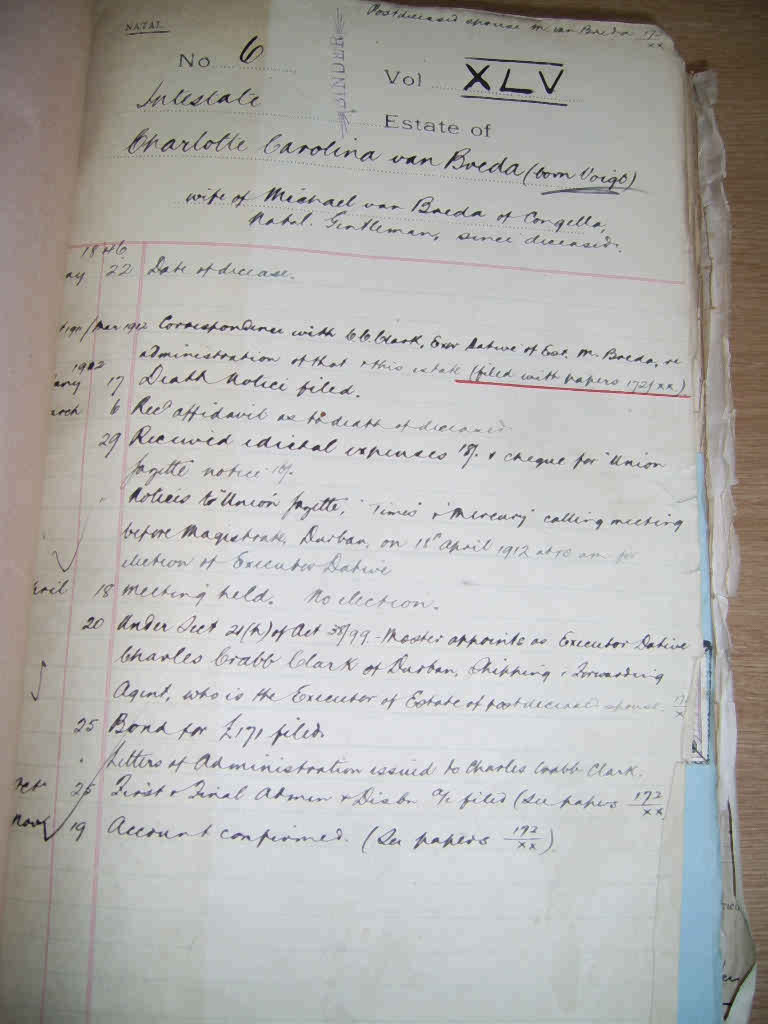 Postdeceased spouse M. van Breda 172/XX
NATAL
No 6
BINDER
Vol XLV
Intestate
Estate of
Charlotte Carolina van Breda (born Voigt)
wife of Michael van Breda of Congella,
Natal. Gentleman, since deceased.
1846
ay 22 Date of decease.
1911/Mar 1912 Correspondence with CC Clark, Exor Dative of Est. M. Breda, re
administration of that & this estate (filed with papers 172/XX.)
1912
uary 17 Death Notice filed.
arch 6 Recd affidavit as to death of deceased
29 Received edictal expenses 18/- & cheque for "Union
Gazette notice
" Notices to "Union Gazette, "Times" & "Mercury" calling meeting
before Magistrate, Durban, on 18th April 1912 at 10 am for
election of Executor Dative
pril 18 Meeting held. No election.
20 Under Sect 21(h) of Act 38/99 - Master appoints as Executor Dative
Charles Crabb Clark of Durban, Shipping & Forwarding
Agent, who is the Executor of Estate of postdeceased spouse. 172/X
25 Bond for £171 filed.
" Letters of Administration issued to Charles Crabb Clark.
Oct 25 First & Final Admin & Distbn a/c filed (See papers 172/XX)
Nov 19 Account confirmed. (See papers 172/XX)